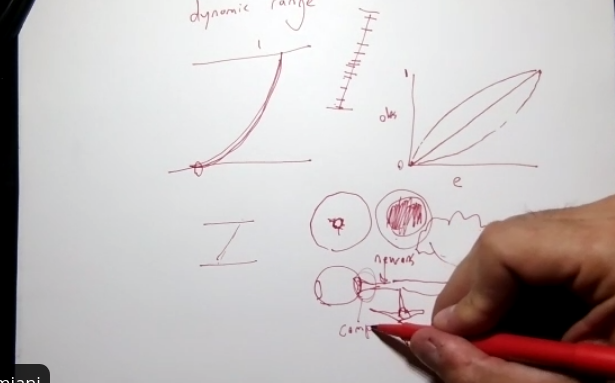 dynamic range
1
1
obs
0
e
neurons
comp
miani